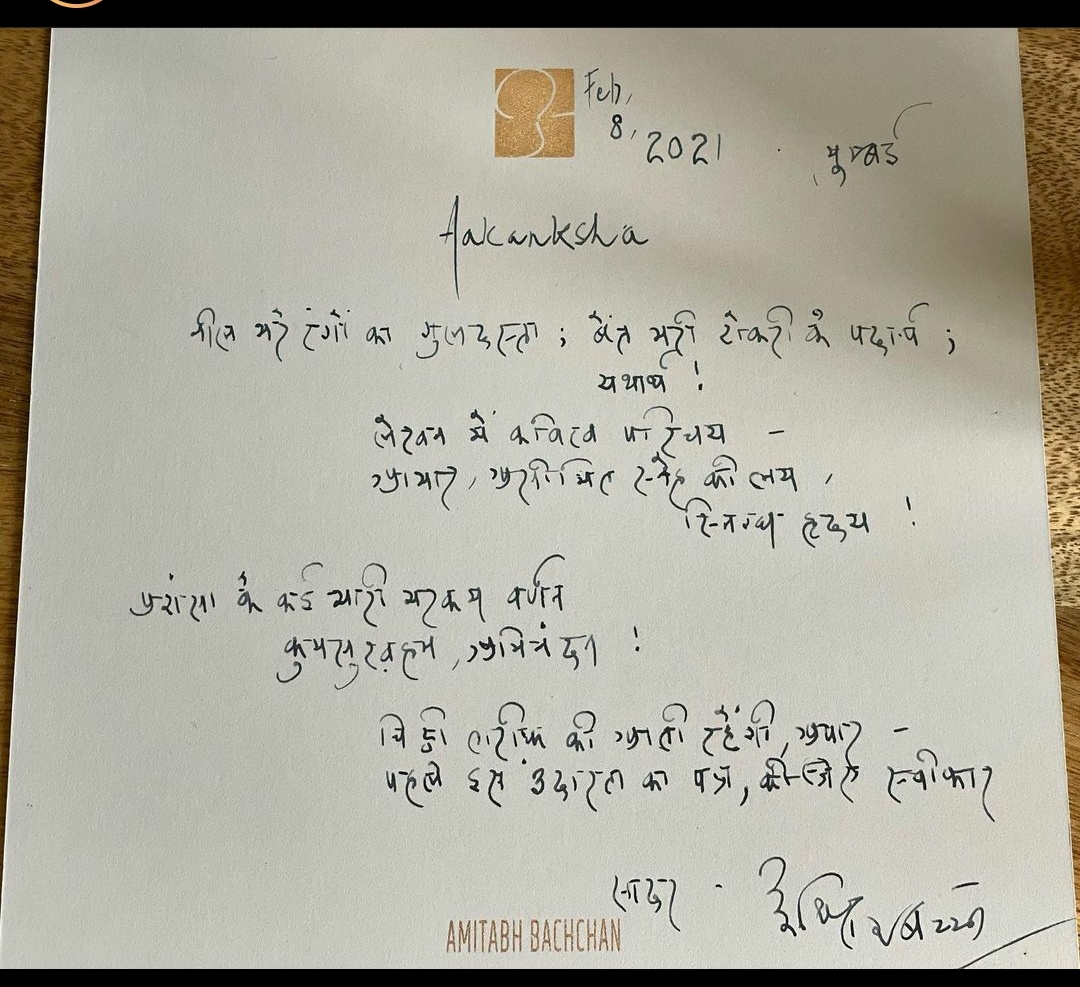 Feb,
8, 2021
मुम्बई
Aakanksha
नील भरे रंगों का गुलदस्ता ; बेंत भरी टोकरी के पदार्थ ;
यथार्थ !
लेखन में कवित्व परिचय -
आभार, स्नेह की लय,
स्निग्ध हृदय !
प्रशंसा के कई भारी भरकम वर्णन
अभिनंदन !
चिट्ठी तारीफ़ की आती रहेंगी, अपार -
पहले इस उदारता का पत्र, स्वीकार
सादर -
अमिताभ बच्चन
AMITABH BACHCHAN